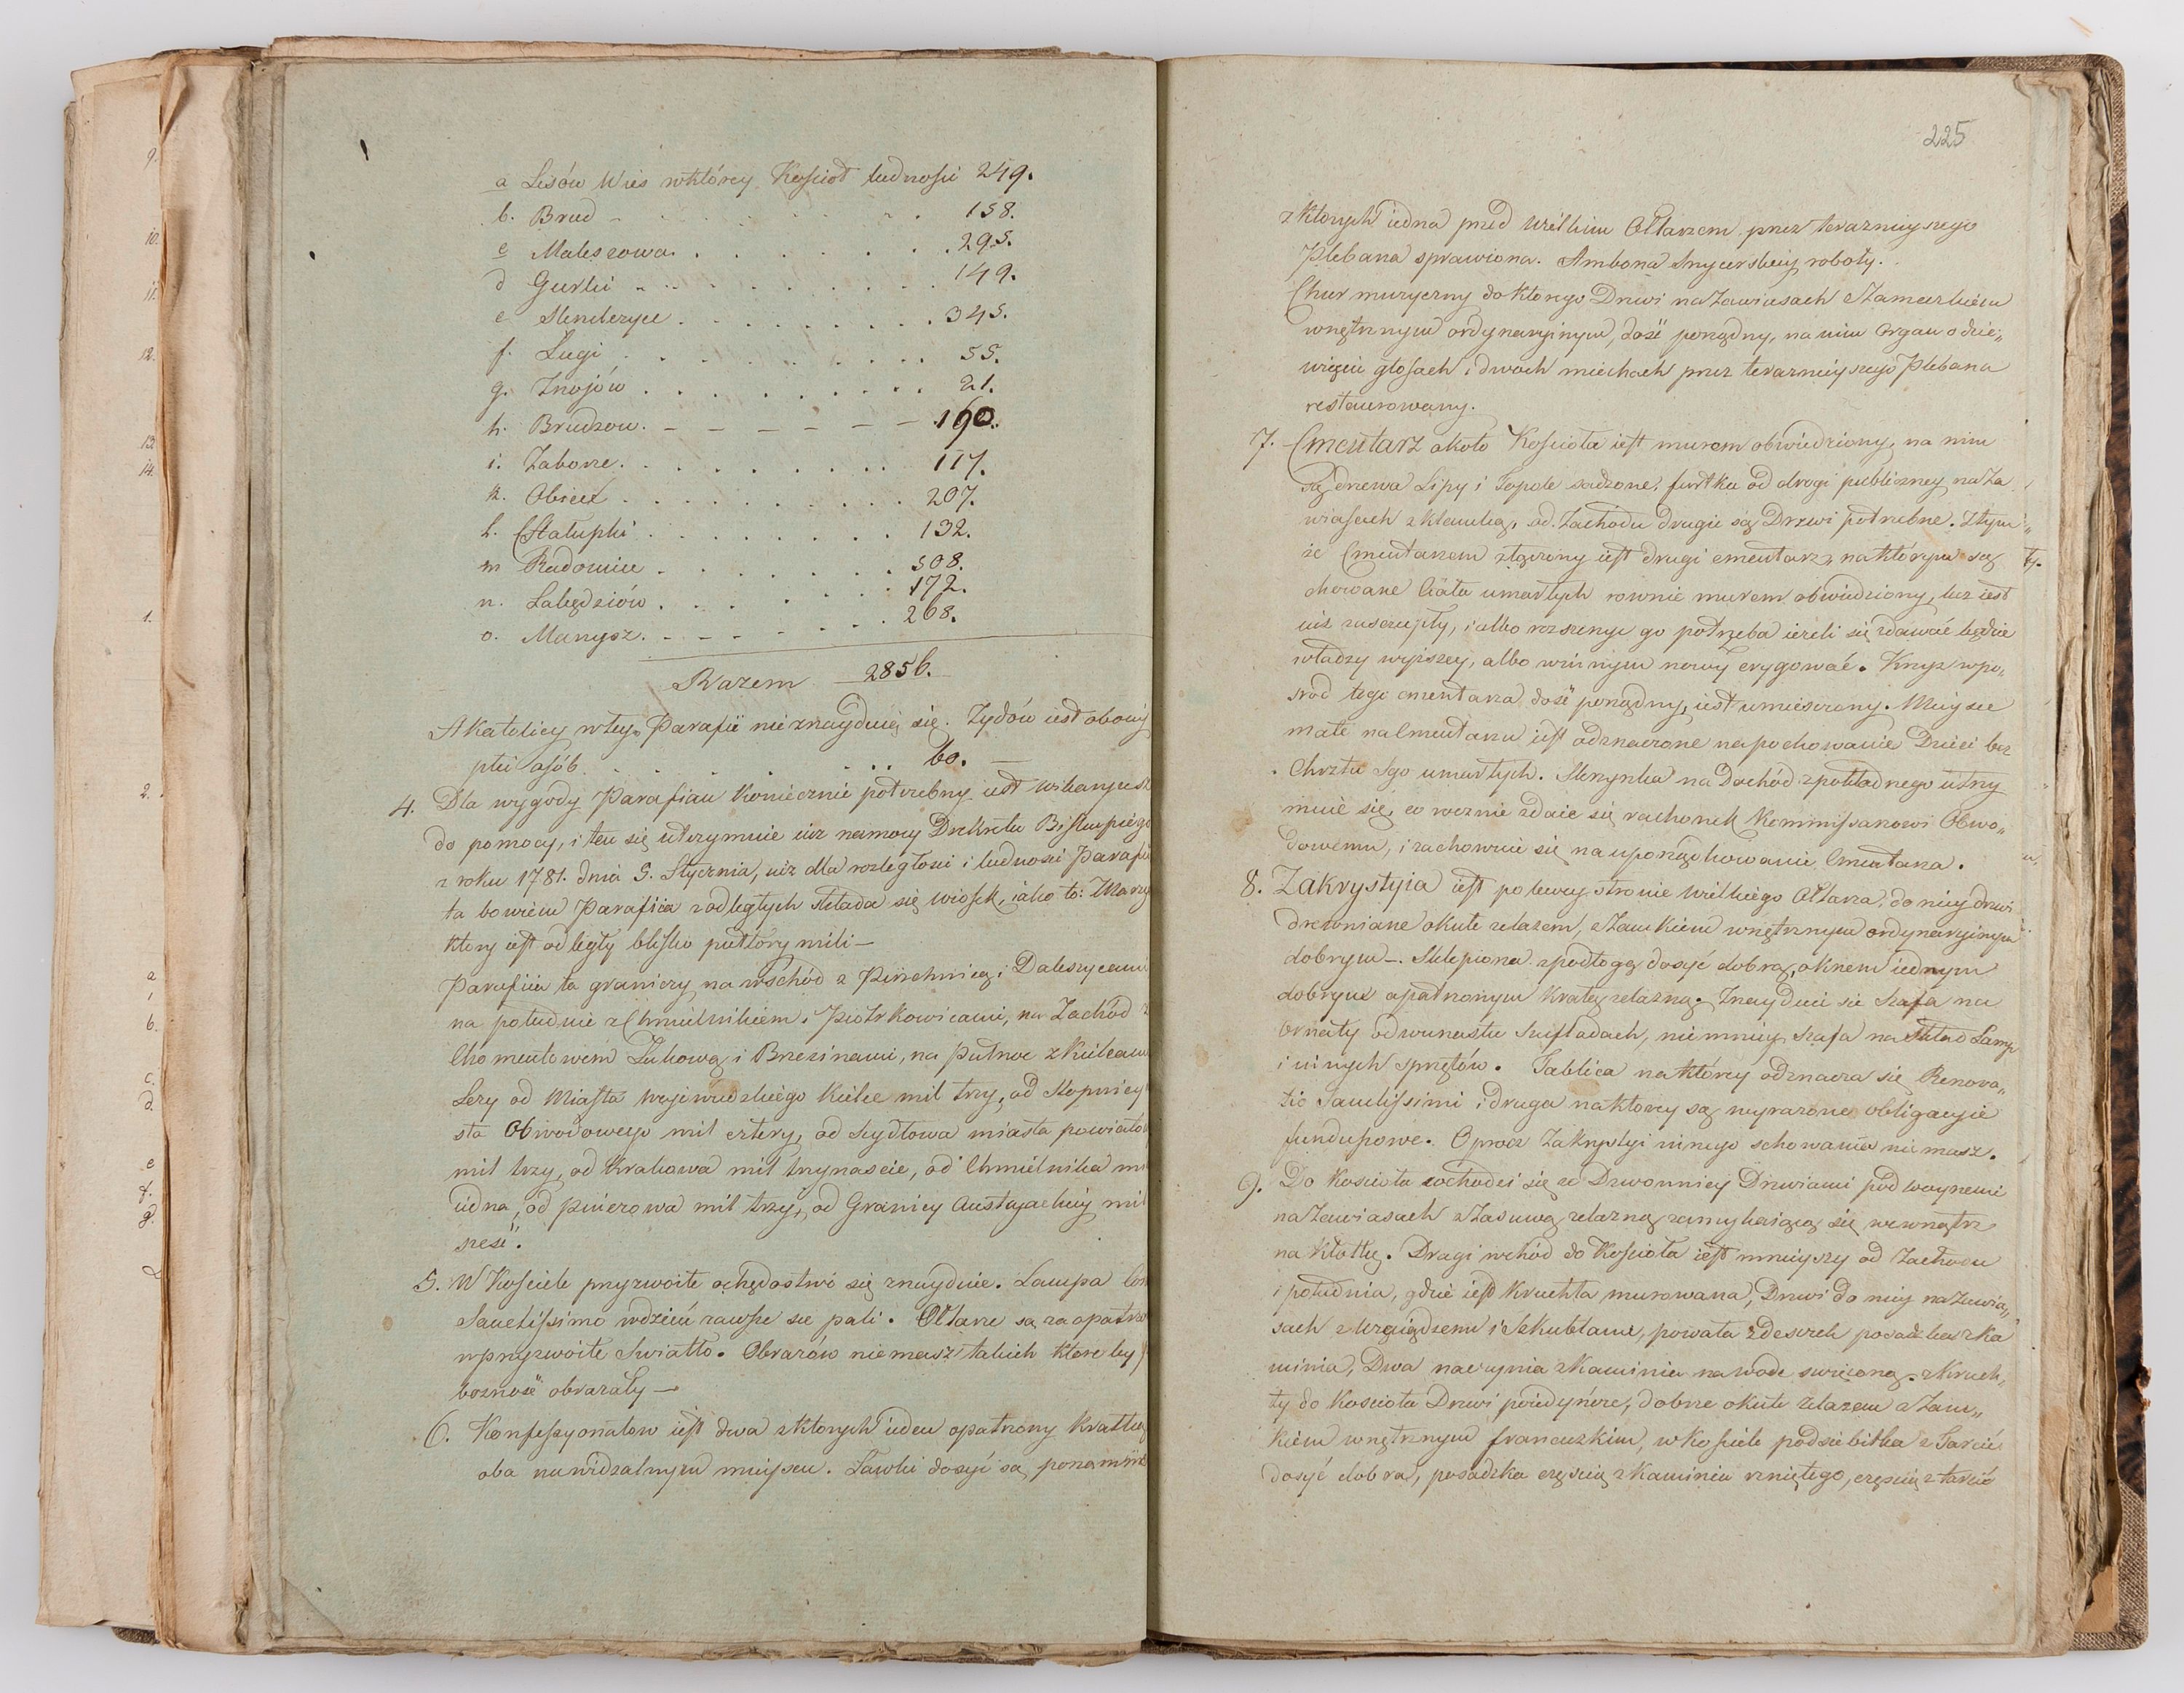 a Lisów Wieś wktórey Kościoł ludności 249.
b. Brud 158.
c Maleszowa 295.
d Gurki 149.
e Skrzelczyce 345.
f. Ługi 55.
g. Znojów 21.
h. Brudzow. 190.
i. Zaborze. 117.
k. Obice 207.
l. Chałupki 132.
m Radomice 508.
n. Łabędziów 172.
o. Marzysz. 268.
Razem 2856.
Akatolicy wtey Parafii nieznayduią się. Zydów iest oboiey
płci osób 60.
4. Dla wygody Parafian koniecznie potrzebny iest wikaryusz
do pomocy, i ten się utrzymuie iuż namocy Dekretu Biskupiego
z roku 1781. dnia 5. Stycznia, iuż dla rozległości i ludności Parafii
ta bowiem Parafiia zodległych składa się wiosek, iako to: Marzy
ktory iest odległy blisko pułtory mili —
Parafiia ta graniczy na wschód z Pierzchnicą i Daleszycami
na południe z Chmielnikiem i Piotrkowicami, na Zachód z
Chomentowem Łukową i Brzezinami, na Pułnoc z Kielcam
Leży od Miasta Woiewudzkiego Kielce mil trzy, od Stopnicy
sta Obwodowego mil cztery, od Szydłowa miasta powiatow
mil trzy, od Krakowa mil trzynascie, od Chmielnika mi
iedna, od Pinczowa mil trzy, od Granicy Austryackiey mil
sześć.
5. W Kosciele przyzwoite ochędostwo się znayduie. Lampa cor
Sanctissimo wdzień zawsze się pali. Ołtarze są zaopatrzo
wprzyzwoite Swiatło. Obrazów niemasz takich ktore by
boznosć obrazały —
6. Konfessyonałow iest dwa zktorych ieden opatrzony kratką
oba nawidzalnym mieyscu. Ławki dosyć są porządne
225
zktorych iedna przed Wielkim Ołtarzem przez terazniyszego
Plebana sprawiona. Ambona Snycerskiey roboty.
Chur muzyczny doktorego Drzwi naZawiasach zZamczkiem
wnętrznym ordynaryinym, dość porządny, na nim organ odzie„
więciu głosach i dwoch miechach przez terazniyszego Plebana
restaurowany.
7. Cmentarz około Kościoła iest murem obwiedziony, na nim
są drzewa Lipy i Topole sadzone, furtka od drogi publiczney naZa
wiasach z klamką, od Zachodu drugie są Drzwi potrzebne. Ztym„
że Cmentarzem złączony iest drugi cmentarz, naktórym są
chowane Ciała umarłych rownie murem obwiedziony, lecz iest
iuż zuszczupły, i albo rozszerzyć go potrzeba ieżeli się zdawać będzie
władzy wyższey, albo winnym nowy erygować. Krzyż wpo„
sród tego cmentarza dość porządny, iest umieszczony. Mieysce
małe naCmentarzu iest odznaczone napochowanie Dzieci bez
Chrztu Sgo umarłych. Skrzynka na Dochód zpokładnego utrzy
muie się, co rocznie zdaie się rachonek Kommissarzowi Obwo„
dowemu, i zachownie się nauporządkowanie Cmentarza.
8. Zakrystyia iest po lewey stronie Wielkiego Ołtarza, do niey drzwi
drewniane okute zelazem, zZamkiem wnętrznym ordynaryinym
dobrym —. Sklepiona zpodłogą dosyć dobrą, oknem iednym
dobrym opatrzonym kratą zelazną. Znayduie się Szafa na
ornaty odwunastu Szufladach, niemniey szafa na skład Lamp
i innych sprzętów. Tablica naktórey odznacza się Renova„
tio Sanctissimi i druga naktorey są wyrażone obligacyie
funduszowe. Oprocz Zakrystyi innego schowania niemasz.
9. Do Kościoła wchodzi się ze Dzwonnicy Drzwiami podwoynemi
naZawiasach zZasuwą zelazną zamykaiącą się wewnątrz
na Kłotkę. Drugi wchód do Kościoła iest mnieyszy od Zachodu
i południa, gdzie iest Kruchta murowana, Drzwi do niey naZawia„
sach zWrzeciądzem i Szkublami, powała zdeszczek posadzka zka
mienia, Dwa naczynia zKamienia nawodę swięconą. zKruch„
ty do Kościoła Drzwi poiedyńcze, dobrze okute zelazem zZam„
kiem wnętrznym francuzkim, wKosciele podsiebitka z Tarcić
dosyć dobra, posadzka częscią zKamienia rzniętego, częscią ztarcić